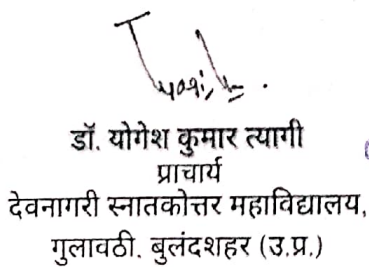 डॉ. योगेश कुमार त्यागी
प्राचार्य
देवनागरी स्नातकोत्तर महाविद्यालय,
गुलावठी. बुलंदशहर (उ.प्र.)